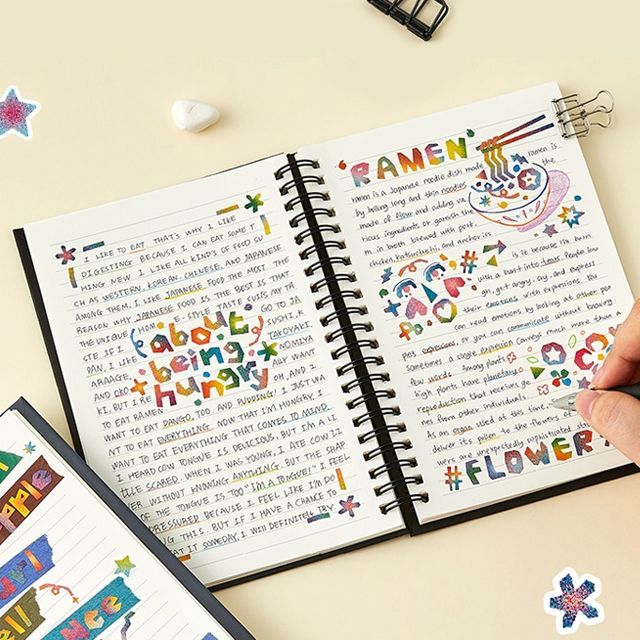 I LIKE TO EAT. THAT'S WHY I LIKE
DIGESTING BECAUSE I CAN EAT SOMET
HING NEW. I LIKE ALL KINDS OF FOOD SU
CH AS WESTERN, KOREAN, CHINESE, AND JAPANESE.
AMONG THEM, I LIKE JAPANESE FOOD THE MOST. THE
REASON WHY JAPANESE FOOD IS THE BEST IS THAT
THE UNIQUE HOME-STYLE TASTE SUITS MY TA
STE. IF I GO TO JA
PAN, I LIKE SUSHI, K
TAKOYAKI,
ARAAGE, NOMIYA
AND OKO
KI. BUT I RE AH, AND I
about
being
hungry
TO EAT RAMEN
WANT TO EAT DANGO, TOO. AND PUDDING! I JUST WA
NT TO EAT EVERYTHING. NOW THAT I'M HUNGRY, I
WANT TO EAT EVERYTHING THAT COMES TO MIND.
I HEARD COW TONGUE IS DELICIOUS, BUT I'M A LI
TTLE SCARED. WHEN I WAS YOUNG, I ATE COW LI
VER WITHOUT KNOWING ANYTHING. BUT THE SHAP
OF THE TONGUE IS TOO "I'M A TONGUE!" I FEEL
PRESSURED BECAUSE I FEEL LIKE I'M DO
ING THIS. BUT IF I HAVE A CHANCE TO
EAT IT SOMEDAY, I WILL DEFINITELY TRY.
'RAMEN'
ramen is
ramen is a Japanese noodle dish made
by boiling long and thin noodles the
made of flour and adding va
rious ingredients or garnish the
m in broth
chicken, katsuobushi and anchovies.
is it because it's burn
with a burst into tears. People law
gh, get angry, cry, and express
their emotions with expressions. You
can read emotions by looking at other peo
ples expressions, or you can communicate without knowing.
Sometimes a single expression conveys much more than a
few words. Among plants
high plants have
reproduction that receives ge
nes from other individual.
As an organ used at this time,
deliver its pollen to the flowers
wers are unexpectedly sophisticated
#FLOWER